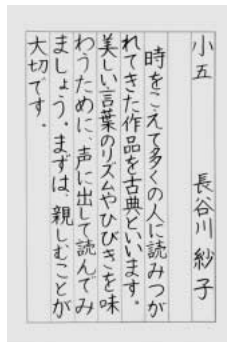 小五　長谷川紗子
時をこえて多くの人に読みつが
れてきた作品を古典といいます。
美しい言葉のリズムやひびきを味
わうために、声に出して読んでみ
ましょう。まずは、親しむことが
大切です。